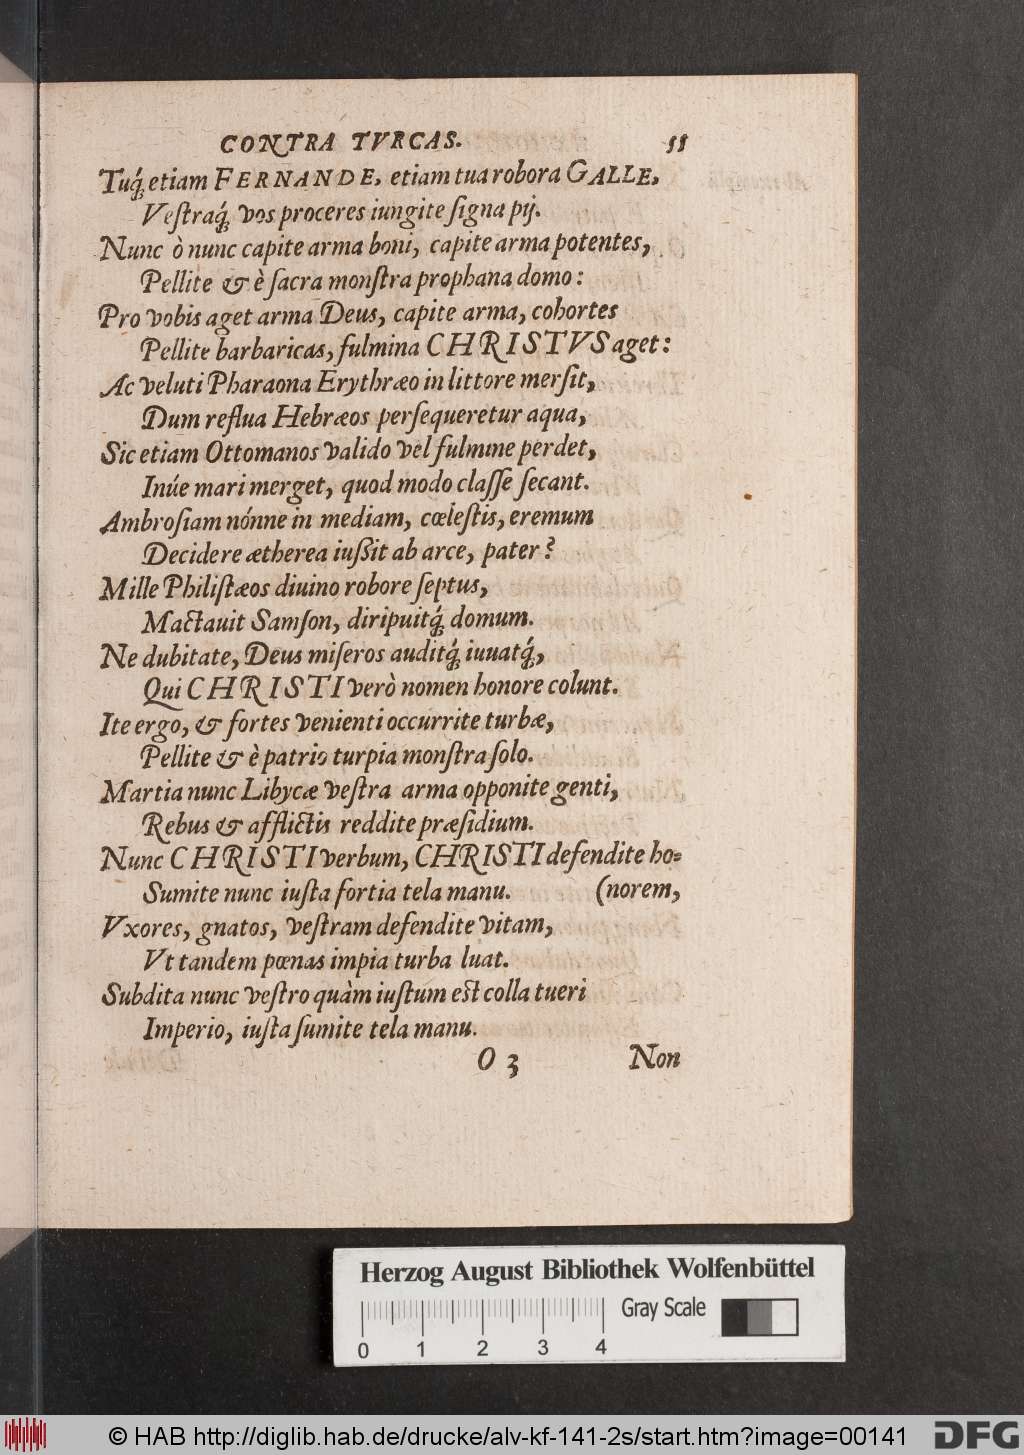 CONTRA TVRCAS. 55
Tuq́; etiam FERNANDE, etiam tua robora GALLE,
Veſtraq́; vos proceres iungite ſigna pij.
Nunc ò nunc capite arma boni, capite arma potentes,
Pellite & è ſacra monſtra prophana domo:
Pro vobis aget arma Deus, capite arma, cohortes
Pellite barbaricas, fulmina CHRISTVS aget:
Ac veluti Pharaona Erythræo in littore merſit,
Dum reflua Hebræos perſequeretur aqua,
Sic etiam Ottomanos valido vel fulmine perdet,
Inúe mari merget, quod modo claſſe ſecant.
Ambroſiam nónne in mediam, cœleſtis, eremum
Decidere ætherea iußit ab arce, pater?
Mille Philiſtæos diuino robore ſeptus,
Mactauit Samſon, diripuitq́; domum.
Ne dubitate, Deus miſeros auditq́; iuuatq́;,
Qui CHRISTI verò nomen honore colunt.
Ite ergo, & fortes venienti occurrite turbæ,
Pellite & è patrio turpia monſtra ſolo.
Martia nunc Libycæ veſtra arma opponite genti,
Rebus & afflictis reddite præſidium.
Nunc CHRISTI verbum, CHRISTI defendite ho=
Sumite nunc iuſta fortia tela manu. (norem,
Vxores, gnatos, veſtram defendite vitam,
Vt tandem pœnas impia turba luat.
Subdita nunc veſtro quàm iuſtum eſt colla tueri
Imperio, iuſta ſumite tela manu.
O 3 Non
Herzog August Bibliothek Wolfenbüttel
Gray Scale
0 1 2 3 4
© HAB http://diglib.hab.de/drucke/alv-kf-141-2s/start.htm?image=00141 DFG